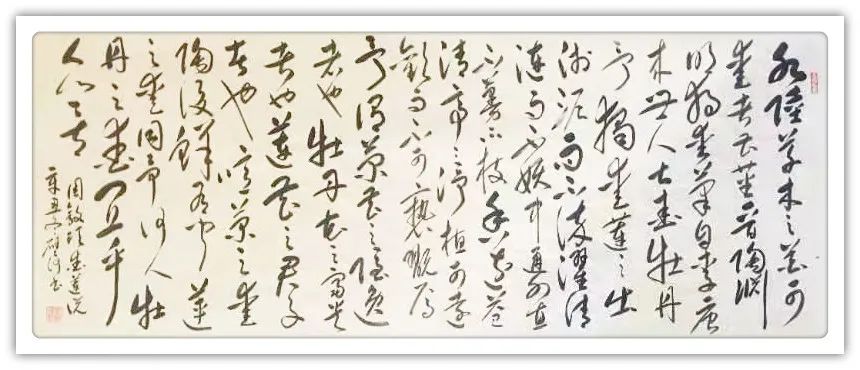 水陸草木之花可
愛者甚蕃晋陶淵
明獨愛菊自李唐
来世人甚愛牡丹
予獨愛蓮之出
淤泥而不染濯清
漣而不妖中通外直
不蔓不枝香遠益
清亭亭淨植可遠
觀而不可褻翫焉
予謂菊花之隐逸
者也牡丹花之富贵
者也蓮花之君子
者也噫菊之愛
陶後鲜有闻蓮
之愛同予何人牡
丹之愛宜乎
众矣
周敦頤愛蓮说
辛丑 书